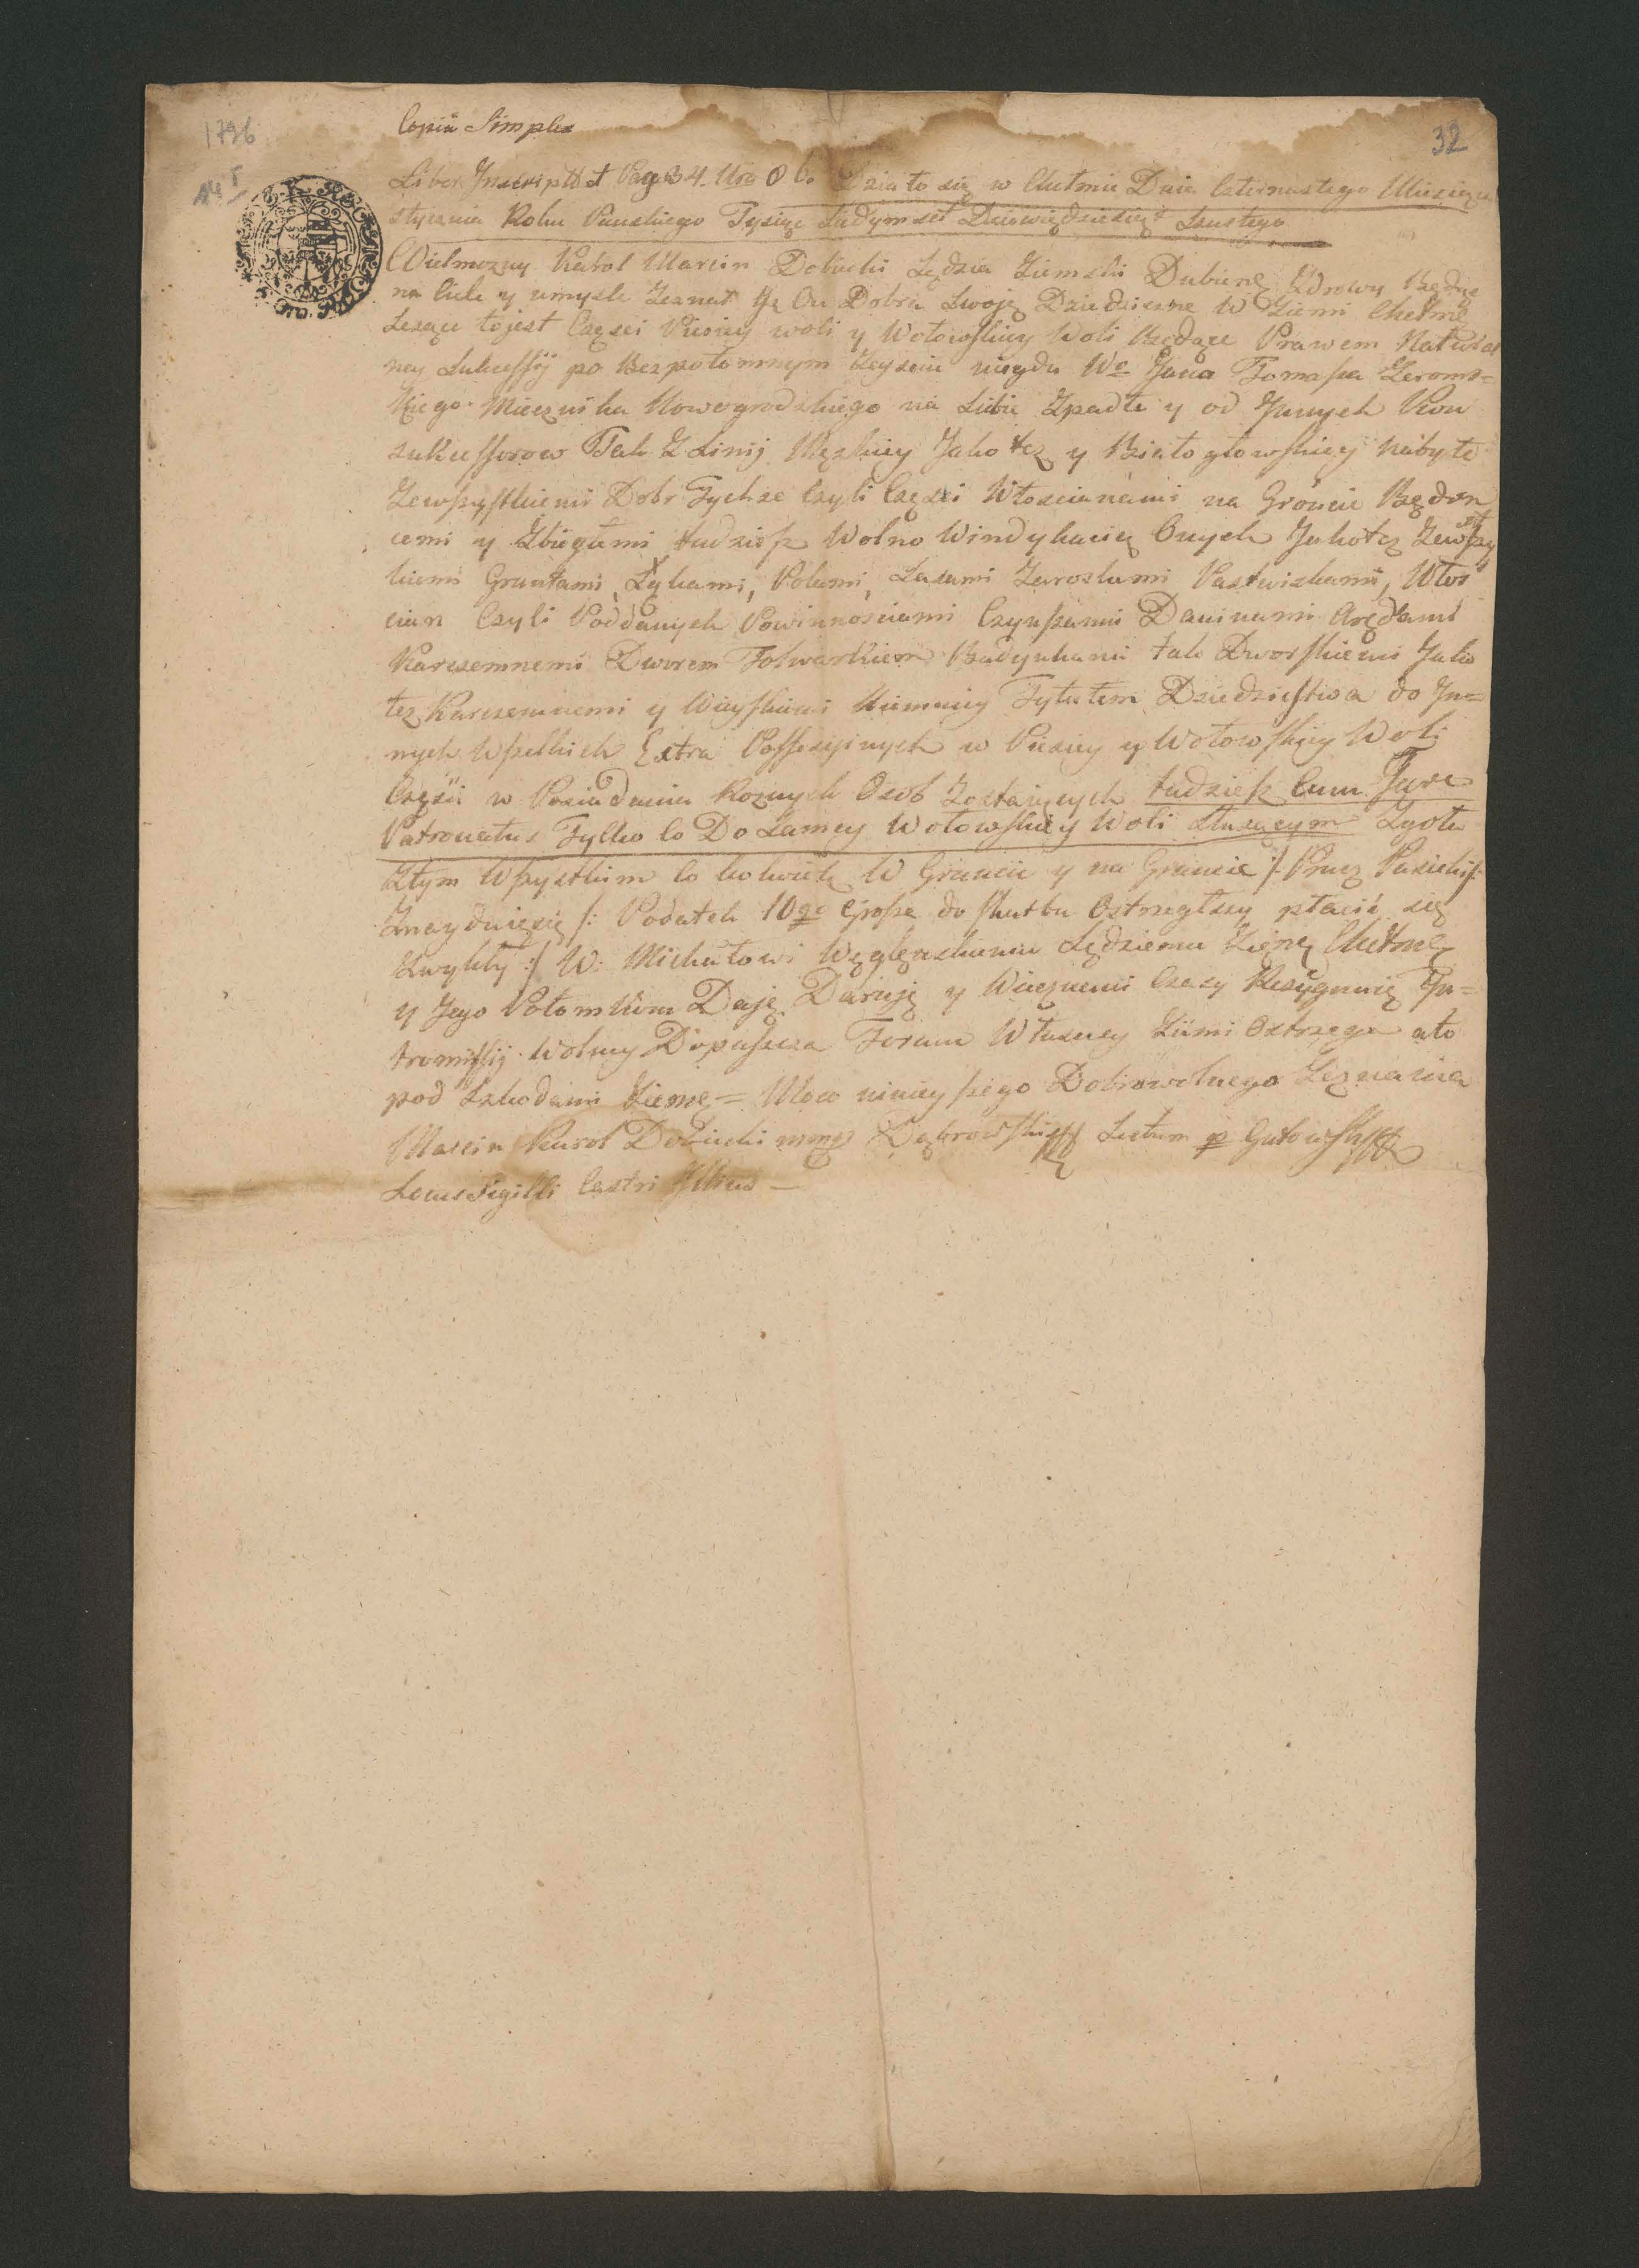 1796
32
Copia Simplex
Liber Inscript Pag 34. Nro 86. Działo się w Chełmie Dnia Czternastego Miesiąca
stycznia Roku Panskiego Tysiąc Siedymset Dziewiędziesiąt Szustego
Wielmozny Karol Marcin Sędzia Ziemski Dubienę Zdrowy Będąc
na Ciele y umysle Zeznał Jz On Dobra Swoję Dziedziczne W Ziemi Chełmę
Lezące tojest Częsci Woli y Wołowskiey Woli Będące Prawem Natural
ney Sukcessÿ po Bezpotomnym Zeysciu niegdu Wo Jana Tomasza Zeroms=
kiego Miecznika Nowogrodzkiego na Siebie Zpadłe y od Jnnych Kon
sukcessorow Tak Z Linij Męzkiey Jako też y Białogłowskiey nabyte
Zewszystkiemi Dobr Tychze Czyli Częsci Włoscianami na Gróncie Będon
cemi y Zbiegłemi tudziesz Wolno Windykacią Onych Jakotez Zewszyst
kiemi Gruntami, Łąkami, Polami, Lasami Zaroslami Pastwiskami, Włos
cian Czyli Poddanych Powinnosciami Czynszami Daninami Arędami
Karczemnemi Dworem Folwarkiem Budynkami tak Dworskiemi Jako
tez Karczemnemi y Wieyskiemi Niemniey Tytułem Dziedzictwa do Jn=
nych Wszelkich Extra Possessyinych w y Wołowskiey Woli
Częsci w Posiadaniu Roznych Osob Zostaiących tudziesz Cum Jure
Patronatus Tylko Co Do Samey Wołowskiey Woli słuzącym Zgoła
Ztym Wszystkim Co kolwiek W Gruncie y na Gruncie /: Prucz Pasieki :/
Znayduięsię /: Podatek 10go Grosza do skarbu Ostrzegłszy płacić się
Zwykły :/ W: Michałowi Węgleńskiemu Sędziemu Ziemę Chełmę
y Jego Potomkom Daję Daruję y Wiecznemi Czasy Rezygnuię Jn=
tromissij Wolney Dopuszcza Forum Własney Ziemi Ostrzega ato
pod Szkodami Ziemę = Mocą ninieyszego Dobrowolnego Zeznania
Marcin Karol mpp Dąbrowski Lectum p Gutowski
Locus Sigilli Castri